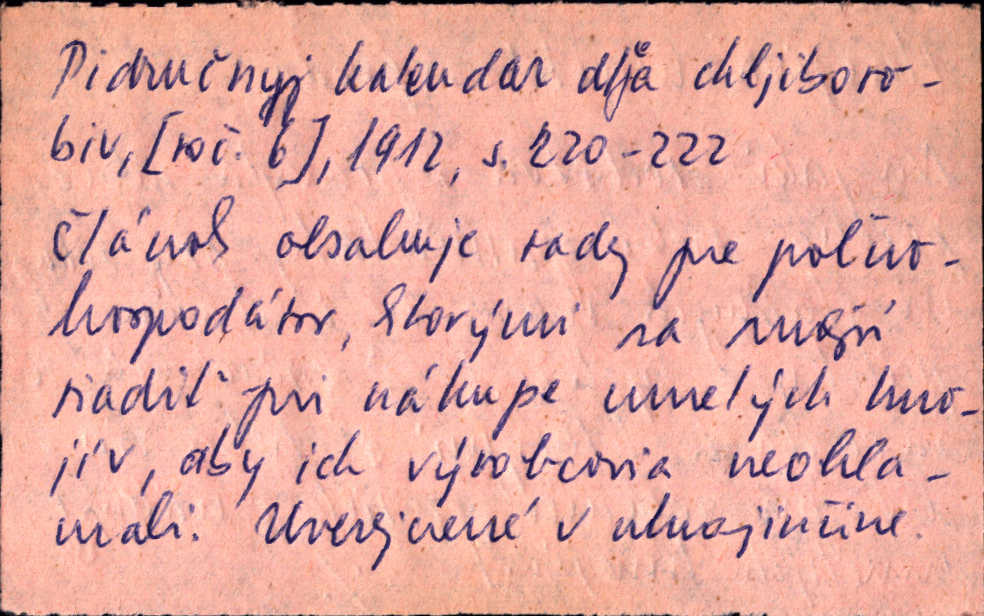 Pidručnyj kalendar dlja chljiboro-
biv, [roč. 6], 1912, s. 220-222
Článok obsahuje rady pre poľno-
hospodárov, ktorými sa majú
riadiť pri nákupe umelých hno-
jív, aby ich výrobcovia neokla-
mali. Uverejnené v ukrajinčine.